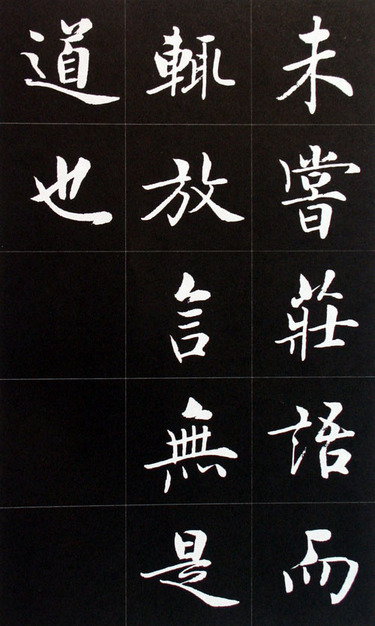 未嘗莊語而
輒放言無是
道也